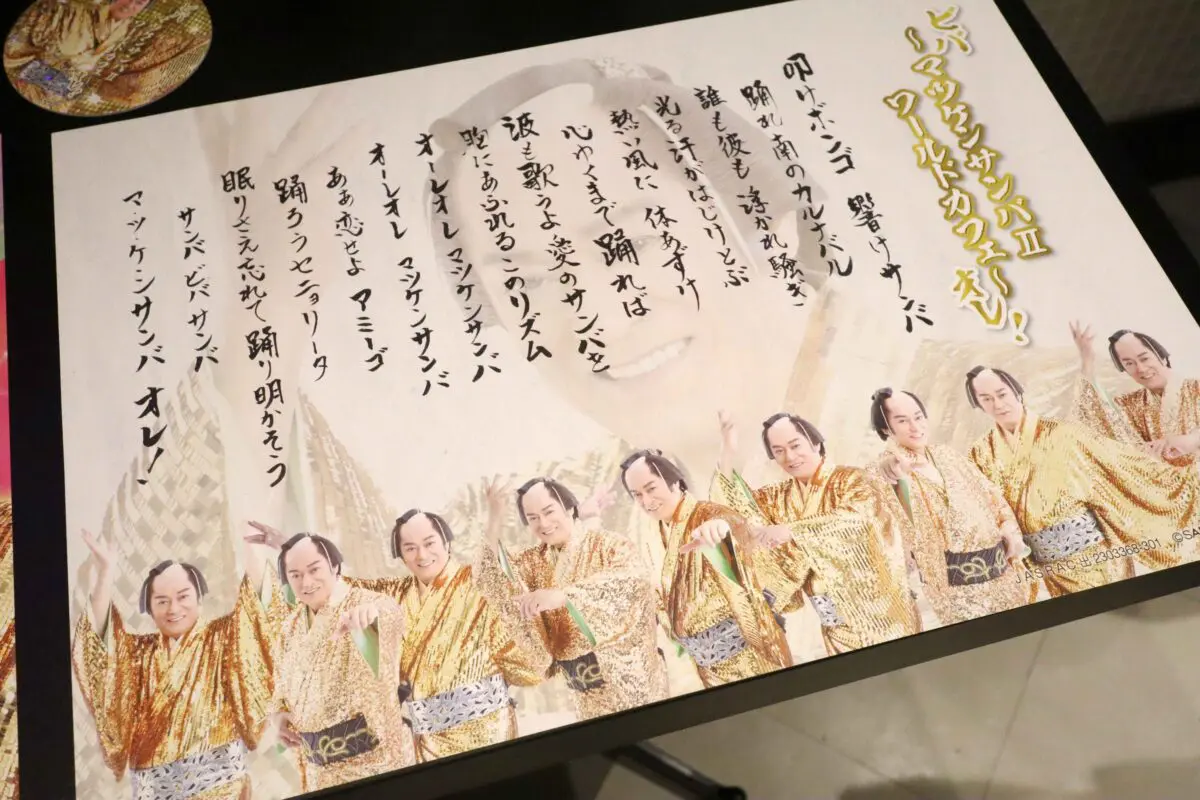 ビバマツケンサンバⅡ
〜マツケンサンバⅡ
ワールドカフェ〜
オレ!
叩けボンゴ 響けサンバ
踊れ南のカルナバル
誰も彼も 浮かれ騒ぎ
光る汗がはじけとぶ
熱い風に 体あずけ
心ゆくまで踊れば
波も歌うよ 愛のサンバを
胸にあふれるこのリズム
オーレオレ マツケンサンバ
オーレオレ マツケンサンバ
あぁ恋せよ アミーゴ
踊ろうセニョリータ
眠りさえ忘れて 踊り明かそう
サンバ ビバ サンバ
マツケンサンバ オレ!
JASRAC 出 2303368-301
©SA